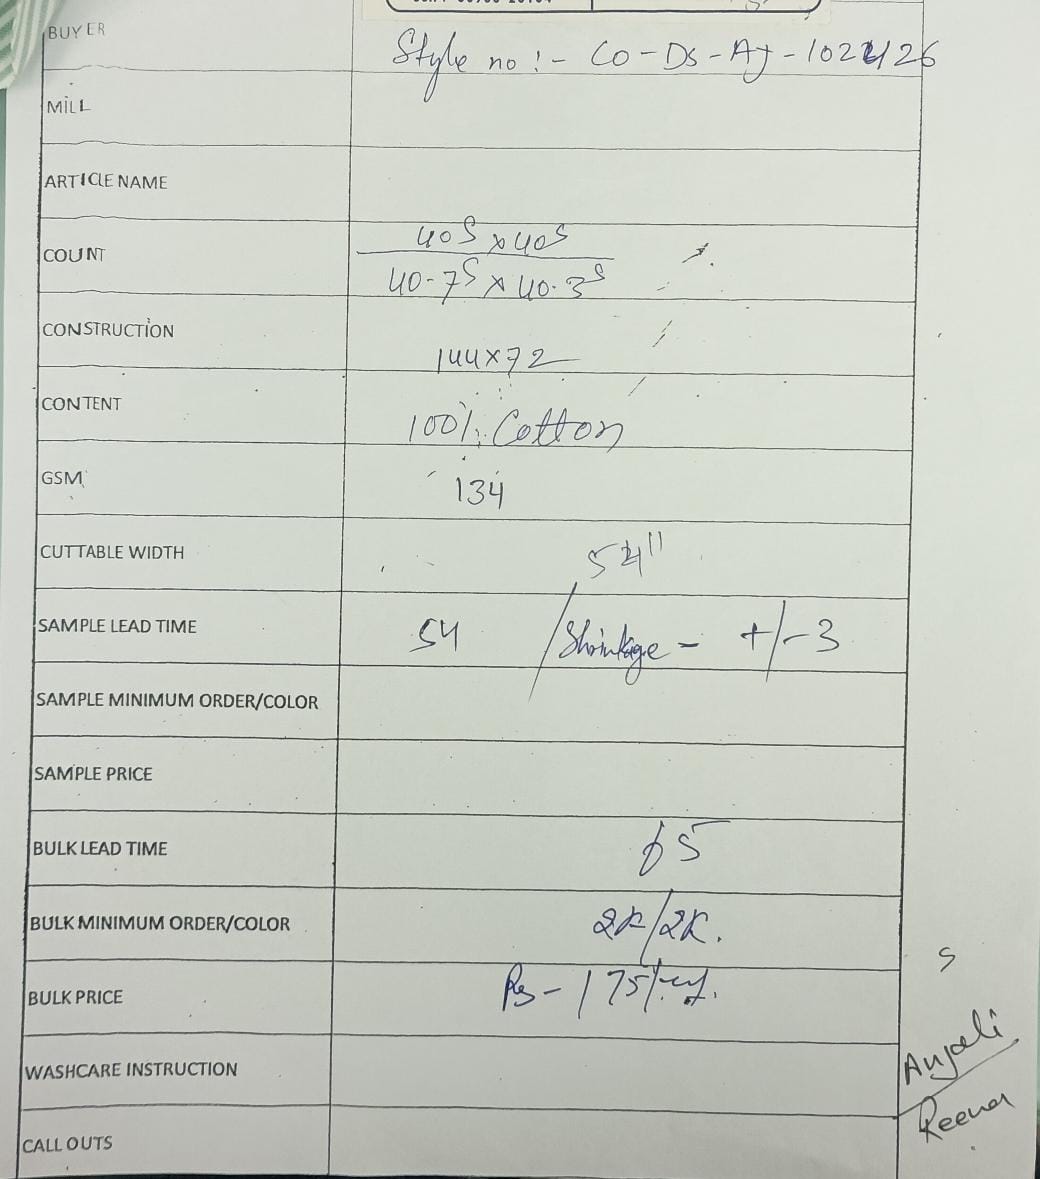 BUYER
Style no :- Co-Ds-AJ-1022426
MILL
ARTICLE NAME
COUNT
40S x 40S
40.7S x 40.3S
CONSTRUCTION
144x72
CONTENT
100% Cotton
GSM
134
CUTTABLE WIDTH
54"
SAMPLE LEAD TIME
54 / Shrinkage - +/-3
SAMPLE MINIMUM ORDER/COLOR
SAMPLE PRICE
BULK LEAD TIME
65
BULK MINIMUM ORDER/COLOR
2K/2K.
S
BULK PRICE
Rs - 175/
WASHCARE INSTRUCTION
Anjali
Reena
CALL OUTS